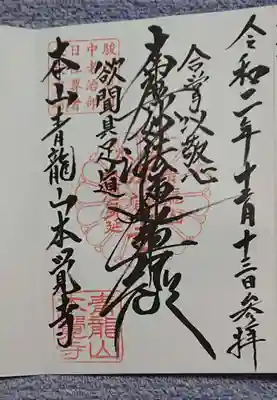 令和二年十二月十三日参拝
合掌以敬心
南無妙法蓮華経
欲聞具足道
本山青龍山本覺寺
中老治部
日位尊者
青龍山
本覺寺